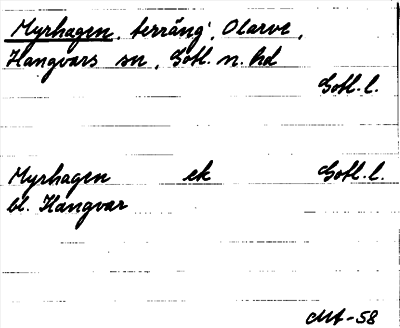 Myrhagen, terräng, Olarve,
Hangvars sn, Gotl. n. hd
Gotl. l.
Myrhagen ek Gotl. l.
bl. Hangvar
MA-58